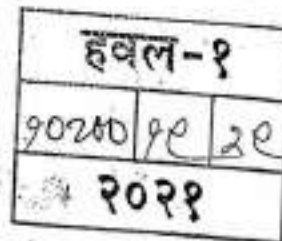 हवल-१
१०२०० १९ २९
२०२१